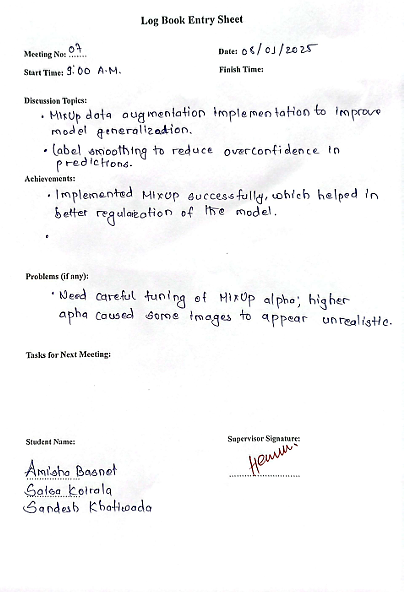 Log Book Entry Sheet
Meeting No: 07
Date: 08/01/2025
Start Time: 9:00 A.M.
Finish Time:
Discussion Topics:
• MixUp data augmentation implementation to improve
model generalization.
• Label smoothing to reduce overconfidence in
predictions.
Achievements:
• Implemented MixUp successfully, which helped in
better regularization of the model.
•
Problems (if any):
• Need careful tuning of MixUp alpha; higher
apha caused some images to appear unrealistic.
Tasks for Next Meeting:
Student Name:
Supervisor Signature:
Amisha Basnet
Salsa Koirala
Sandesh Khatiwada